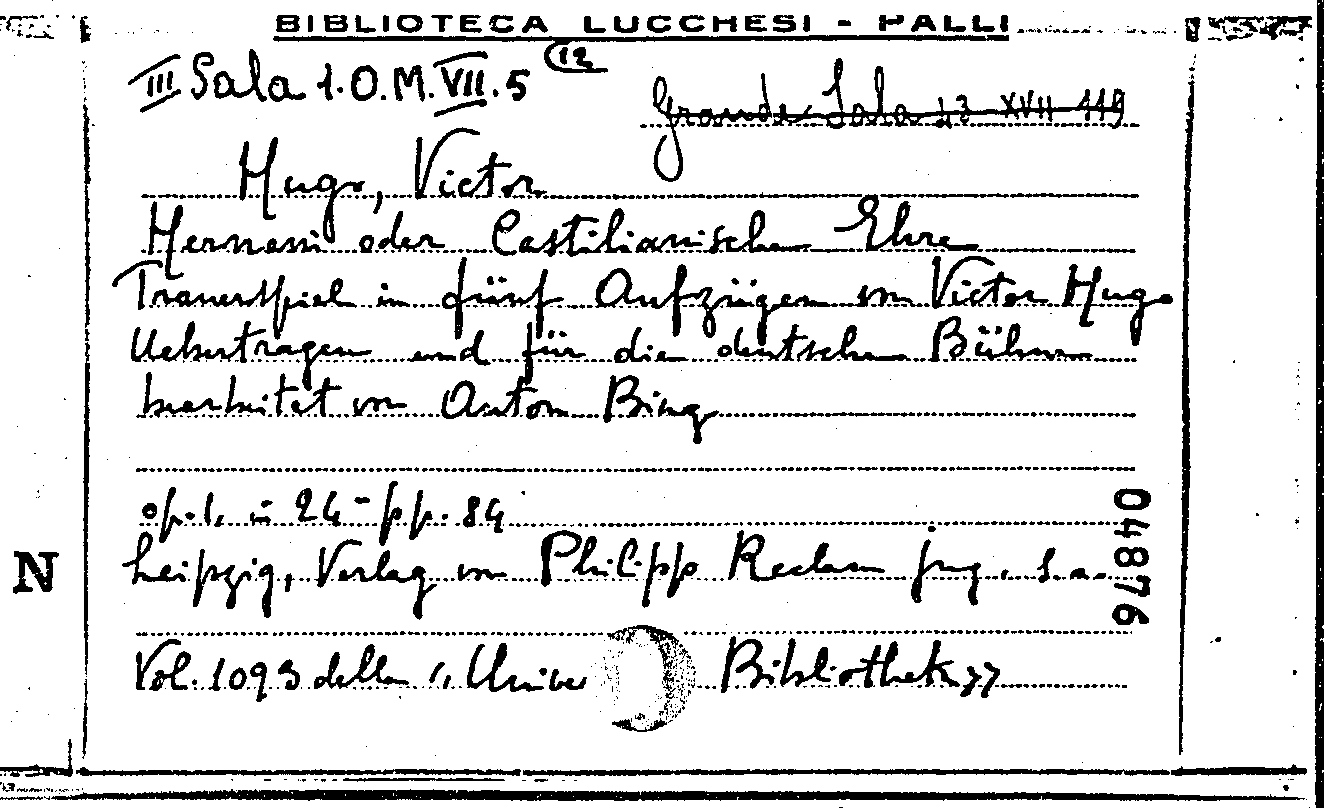 BIBLIOTECA LUCCHESI - PALLI
III Sala 1.O.M.VII.5 (12
Grande Sala 23 XVII 119
Hugo, Victor
Hernani oder Castilianische Ehre
Trauerspiel in fünf Aufzügen von Victor Hugo
Uebertragen und für die deutsche Bühne
bearbeitet von Anton Bing
op.1. in 24- pp. 84
Leipzig, Verlag von Philipp Reclam jng. s.a.
04876
N
Vol. 1093 della "Univer Bibliothek"